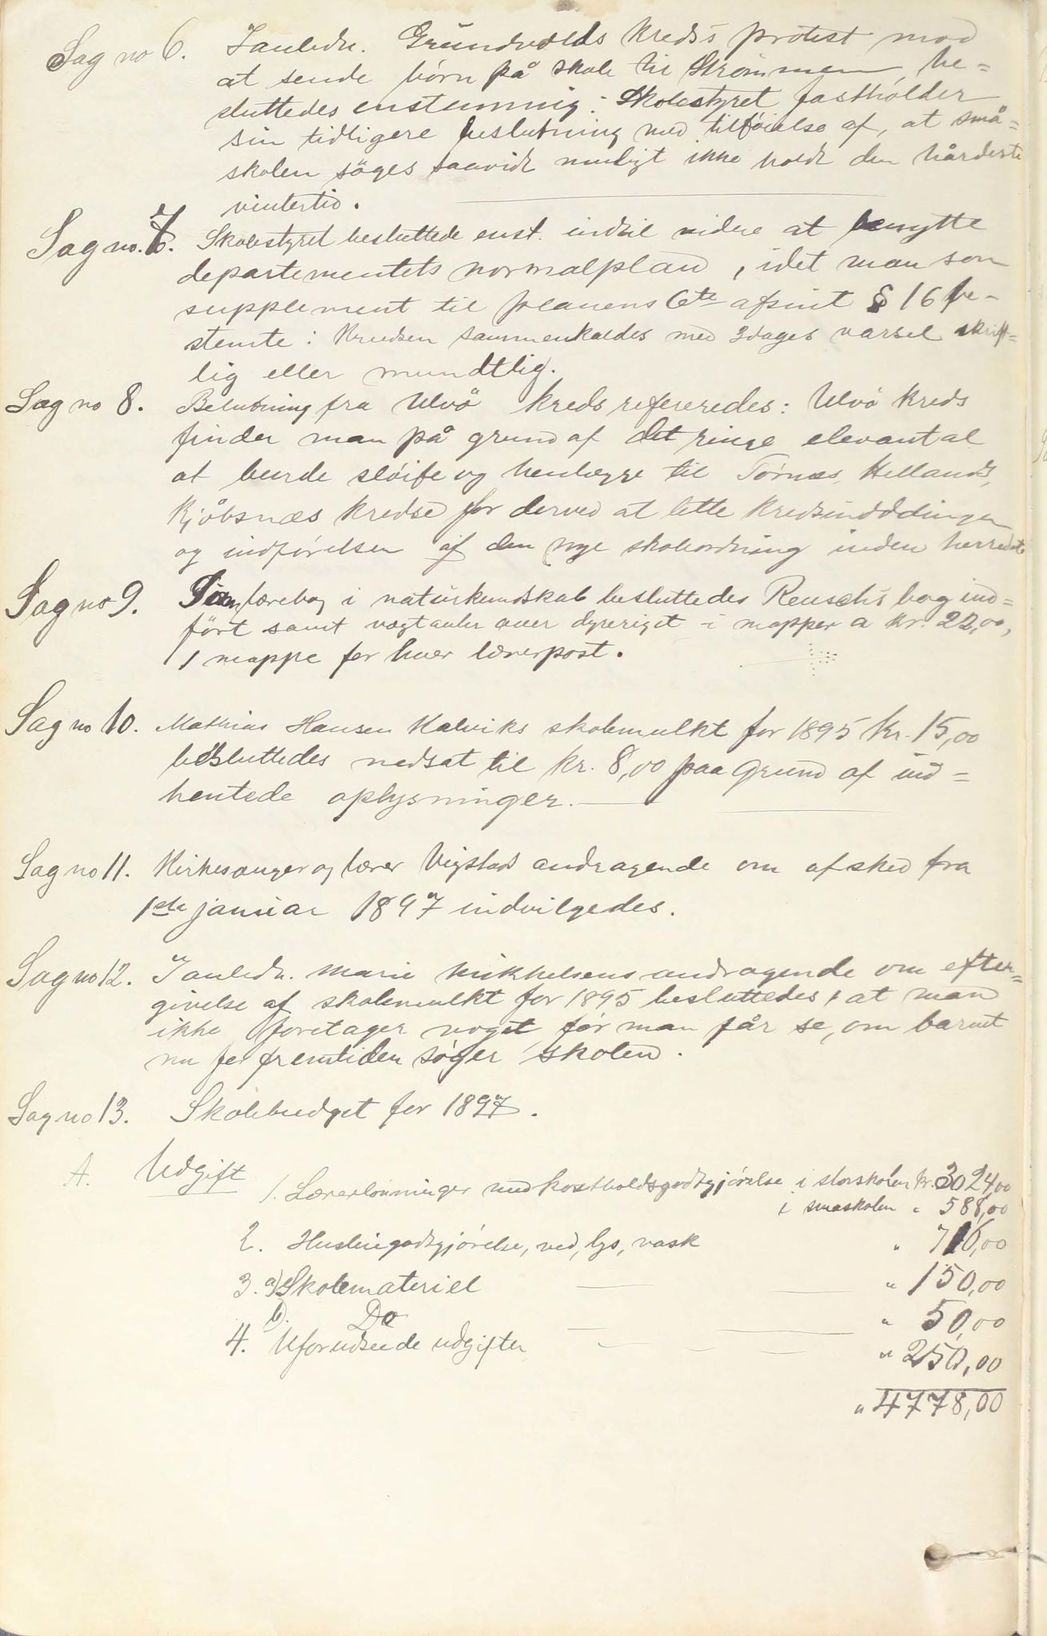 Sag no 6. I anledn. Grundvolds kreds's protest mod
at sende børn på skole til Strømmen be=
sluttedes enstemmig: Skolestyret fastholder
sin tidligere beslutning med tilføielse af, at små=
skolen søges saavidt muligt ikke holdt den hårdeste
vintertid.
Sag no. 7. Skolestyret besluttede enst. indtil videre at benytte
departementets normalplan, idet man som
supplement til planens 6te afsnit § 16 be-
stemte: Kredsen sammenkaldes med 3 dages varsel skrift=
lig eller mundtlig.
Sag no 8. Beslutning fra Ulvø kreds refereredes: Ulvø kreds
finder man på grund af det ringe elevantal
at burde sløife og henlegge til Tørnes, Hellands,
Kjøbsnæs kredse for derved at lette kredsinddelingen
og indførelsen af den nye skoleordning inden herredet
Sag no 9. Som lærebog i naturkundskab besluttedes Reusch's bog ind=
ført samt vægtavler over dyreriget i mapper a kr. 22,00,
1 mappe for hver lærerpost.
Sag no 10. Mathias Hansen Kalviks skolemulkt for 1895 kr. 15,00
besluttedes nedsat til kr. 8,00 paa Grund af ind=
hentede oplysninger.
Sag no 11. Kirkesanger og lærer Vigstads andragende om afsked fra
1ste januar 1897 indvilgedes.
Sag no 12. I anledn. Marie Mikkelsens andragende om efter=
givelse af skolemulkt for 1895 besluttedes, at man
ikke foretager noget før man får se, om barnet
nu for fremtiden søger skolen.
Sag no 13. Skolebudget for 1897.
A. Udgift 1. Lærerlønninger med kostholdsgodtgjørelse i storskolen kr. 3024,00
i småskolen " 588,00
2. Husleiegodtgjørelse, ved, lys, vask " 716,00
3. a) Skolemateriel " 150,00
b) Do " 50,00
4. Uforudseede udgifter " 250,00
" 4778,00